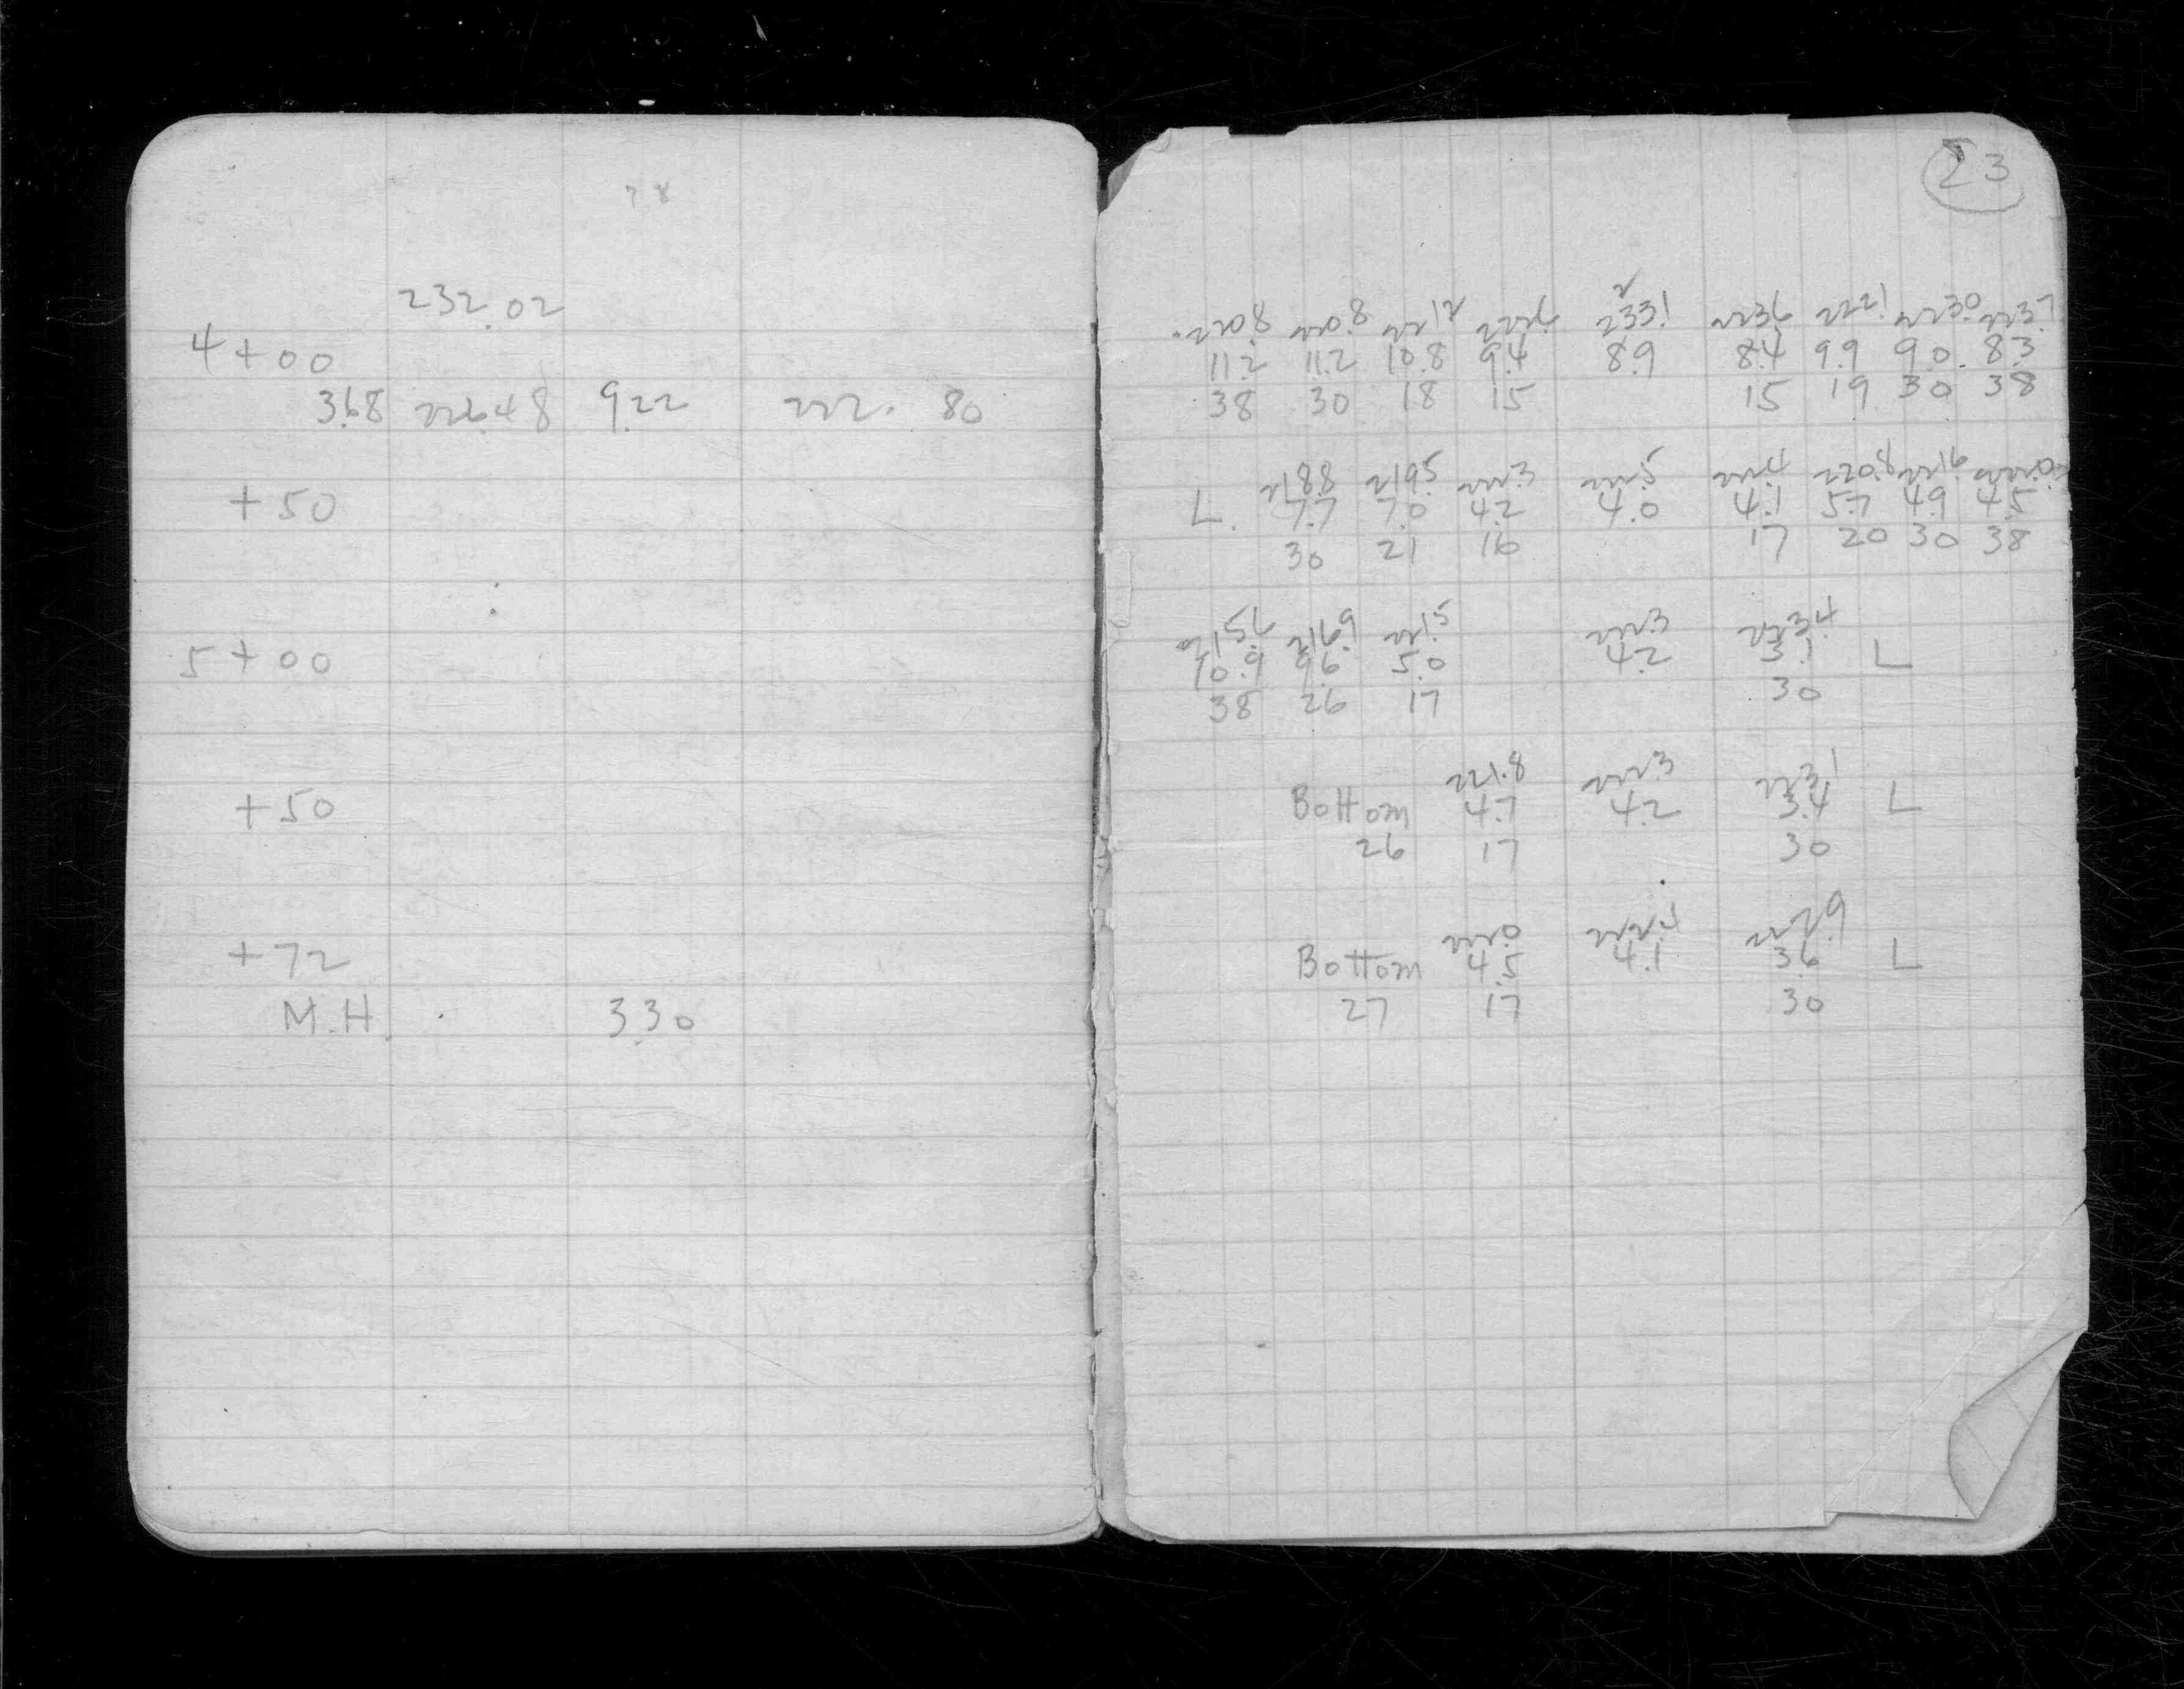 232.02
4+00
3.68 226.48 9.22 222. 80
+50
5+00
+50
+72
M.H. 3.30
23
2
220.8 220.8 221.2 222.6 233.1 223.6 222.1 223.0 223.7
11.2 11.2 10.8 9.4 8.9 8.4 9.9 9.0 8.3
38 30 18 15 15 19 30 38
218.8 219.5 222.3 222.5 222.4 220.8 221.6 222.0
L. 7.7 7.0 4.2 4.0 4.1 5.7 4.9 4.5
30 21 16 17 20 30 38
215.6 216.9 221.5 222.3 223.4
10.9 9.6 5.0 4.2 3.1 L
38 26 17 30
221.8 222.3 223.1
Bottom 4.7 4.2 3.4 L
26 17 30
222.0 222.4 222.9
Bottom 4.5 4.1 3.6 L
27 17 30